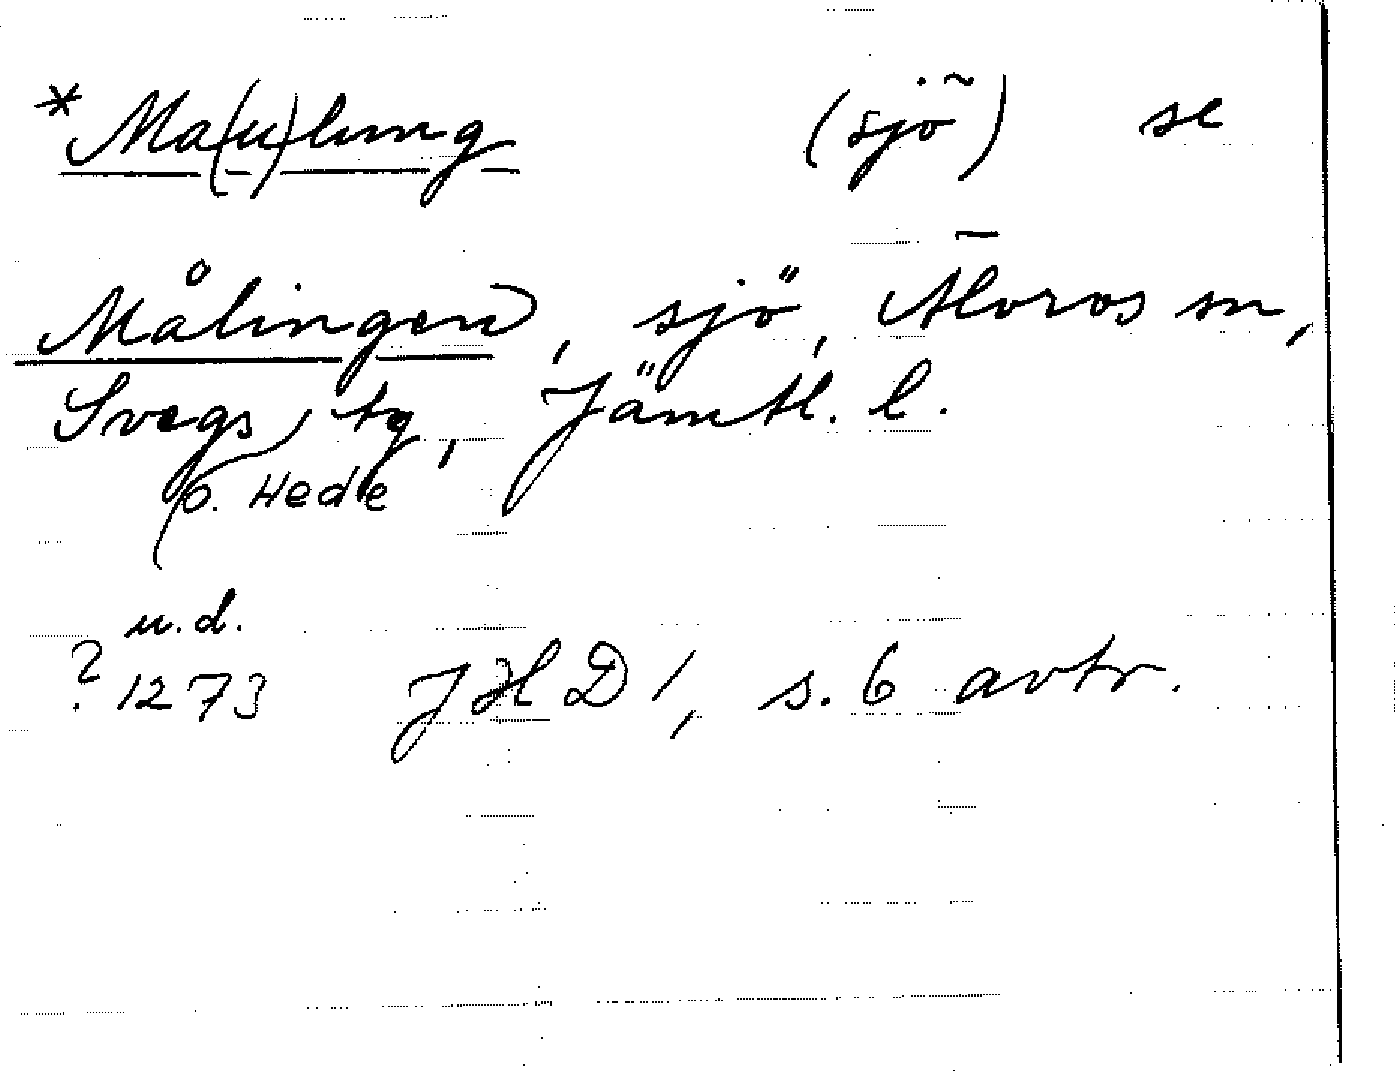 *Ma(u)lung (sjö) se
Målingen, sjö, Älvros sn,
Svegs tg, Jämtl. l.
o. Hede
u.d.
? 1273 JHD 1, s. 6 avtr.